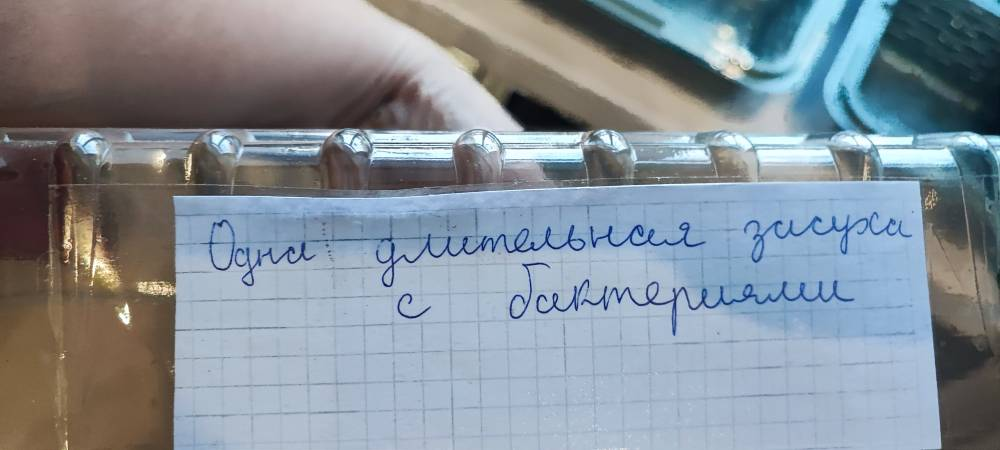 Одна длительная засуха
с бактериями